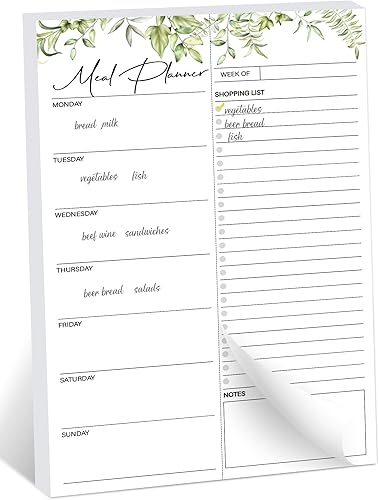 Meal Planner
MONDAY
bread milk
TUESDAY
vegetables fish
WEDNESDAY
beef wine sandwiches
THURSDAY
beer bread salads
FRIDAY
SATURDAY
SUNDAY
WEEK OF
SHOPPING LIST
vegetables
beer bread
fish
NOTES